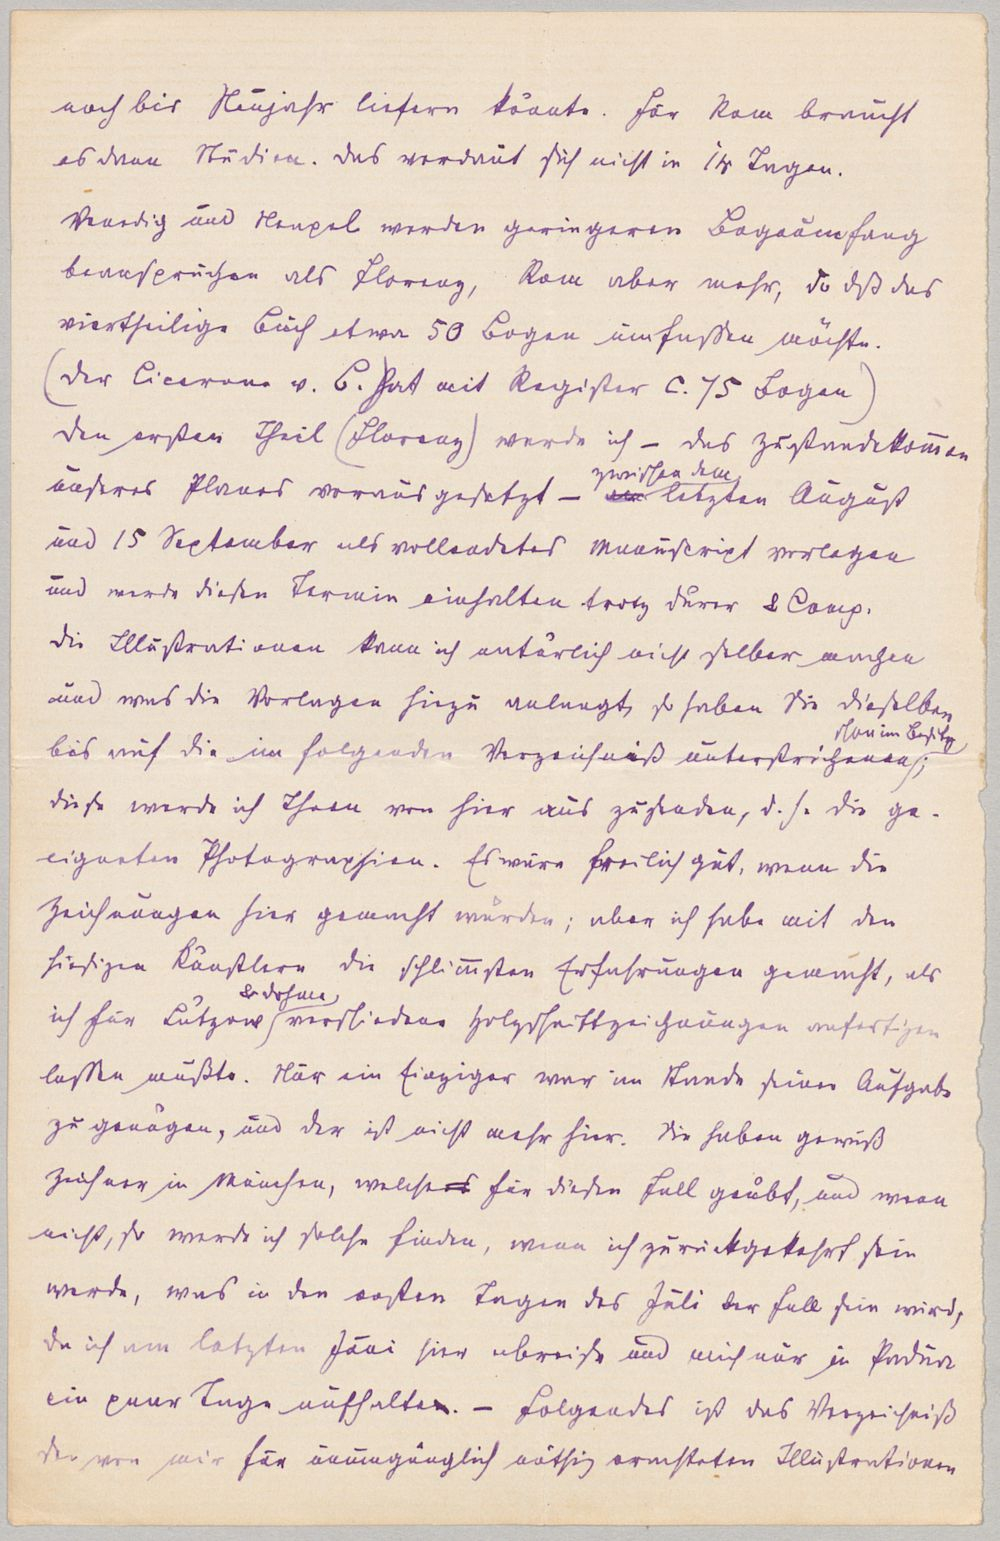 noch bis Neujahr liefern könnte. Für Rom braucht
es dann Studien. Das verdaut sich nicht in 14 Tagen.
Venedig und Neapel werden geringeren Bogenumfang
beanspruchen als Florenz, Rom aber mehr, so dß das
viertheilige Buch etwa 50 Bogen umfassen möchte.
(Der Cicerone v. B. hat mit Register c. 75 Bogen)
Den ersten Theil (Florenz) werde ich – das Zustandekom̅en
unseres Planes vorausgesetzt – zwischen dem letzten August
und 15 September als vollendetes Manuscript vorlegen
und werde diesen Termin einhalten trotz Dürer & Comp.
Die Illustrationen kann ich natürlich nicht selber machen
und was die Vorlagen hiezu anlangt, so haben Sie dieselben
bis auf die im folgenden Verzeichniß unterstrichenen schon im Besitz;
diese werde ich Ihnen von hier aus zusenden, d. h. die ge-
eigneten Photographien. Es wäre freilich gut, wenn die
Zeichnungen hier gemacht würden; aber ich habe mit den
hiesigen Künstlern die schlim̅sten Erfahrungen gemacht, als
ich für Lützow & Dohme verschiedene Holzschnittzeichnungen anfertigen
lassen mußte. Nur ein Einziger war im Stande seiner Aufgabe
zu genügen, und der ist nicht mehr hier. Sie haben gewiß
Zeichner in München, welche für diesen Fall geübt, und wenn
nicht, so werde ich solche finden, wenn ich zurückgekehrt sein
werde, was in den ersten Tagen des Juli der Fall sein wird,
da ich am letzten Juni hier abreise und mich nur in Padua
ein paar Tage aufhalte. – Folgendes ist das Verzeichniß
der von mir für unumgänglich nöthig erachteten Illustrationen